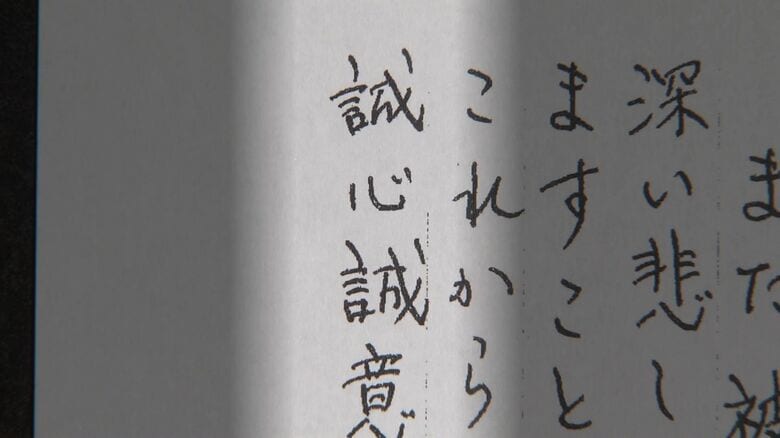 また被
深い悲し
ますこと
これから
誠心誠意